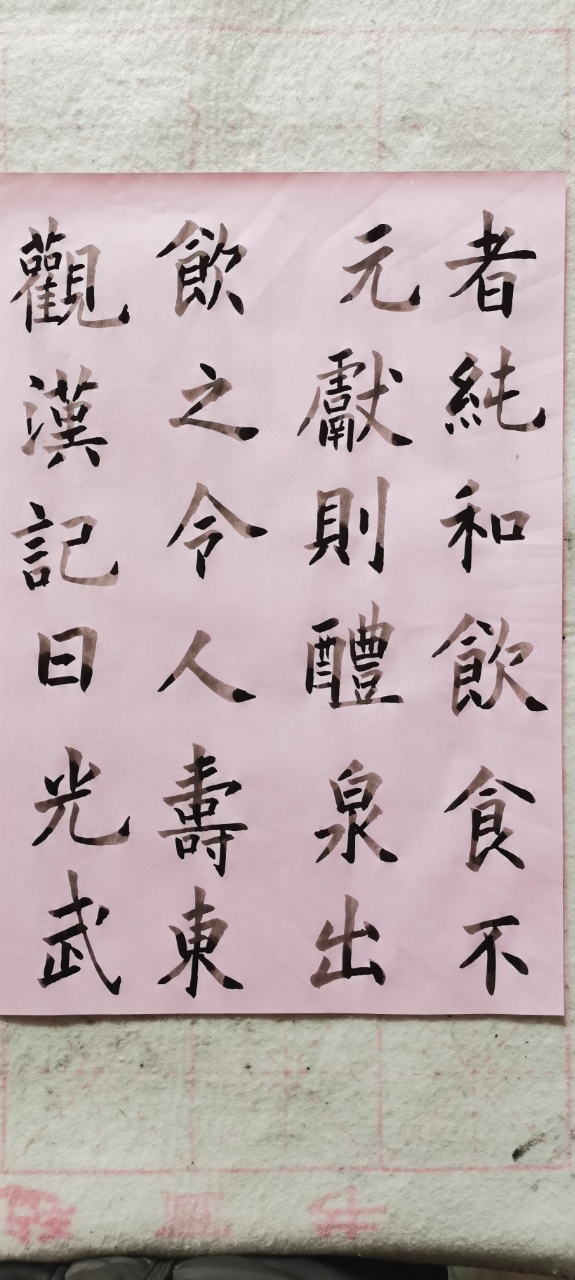 者純和飲食不
元獻則醴泉出
飲之令人壽東
觀漢記曰光武